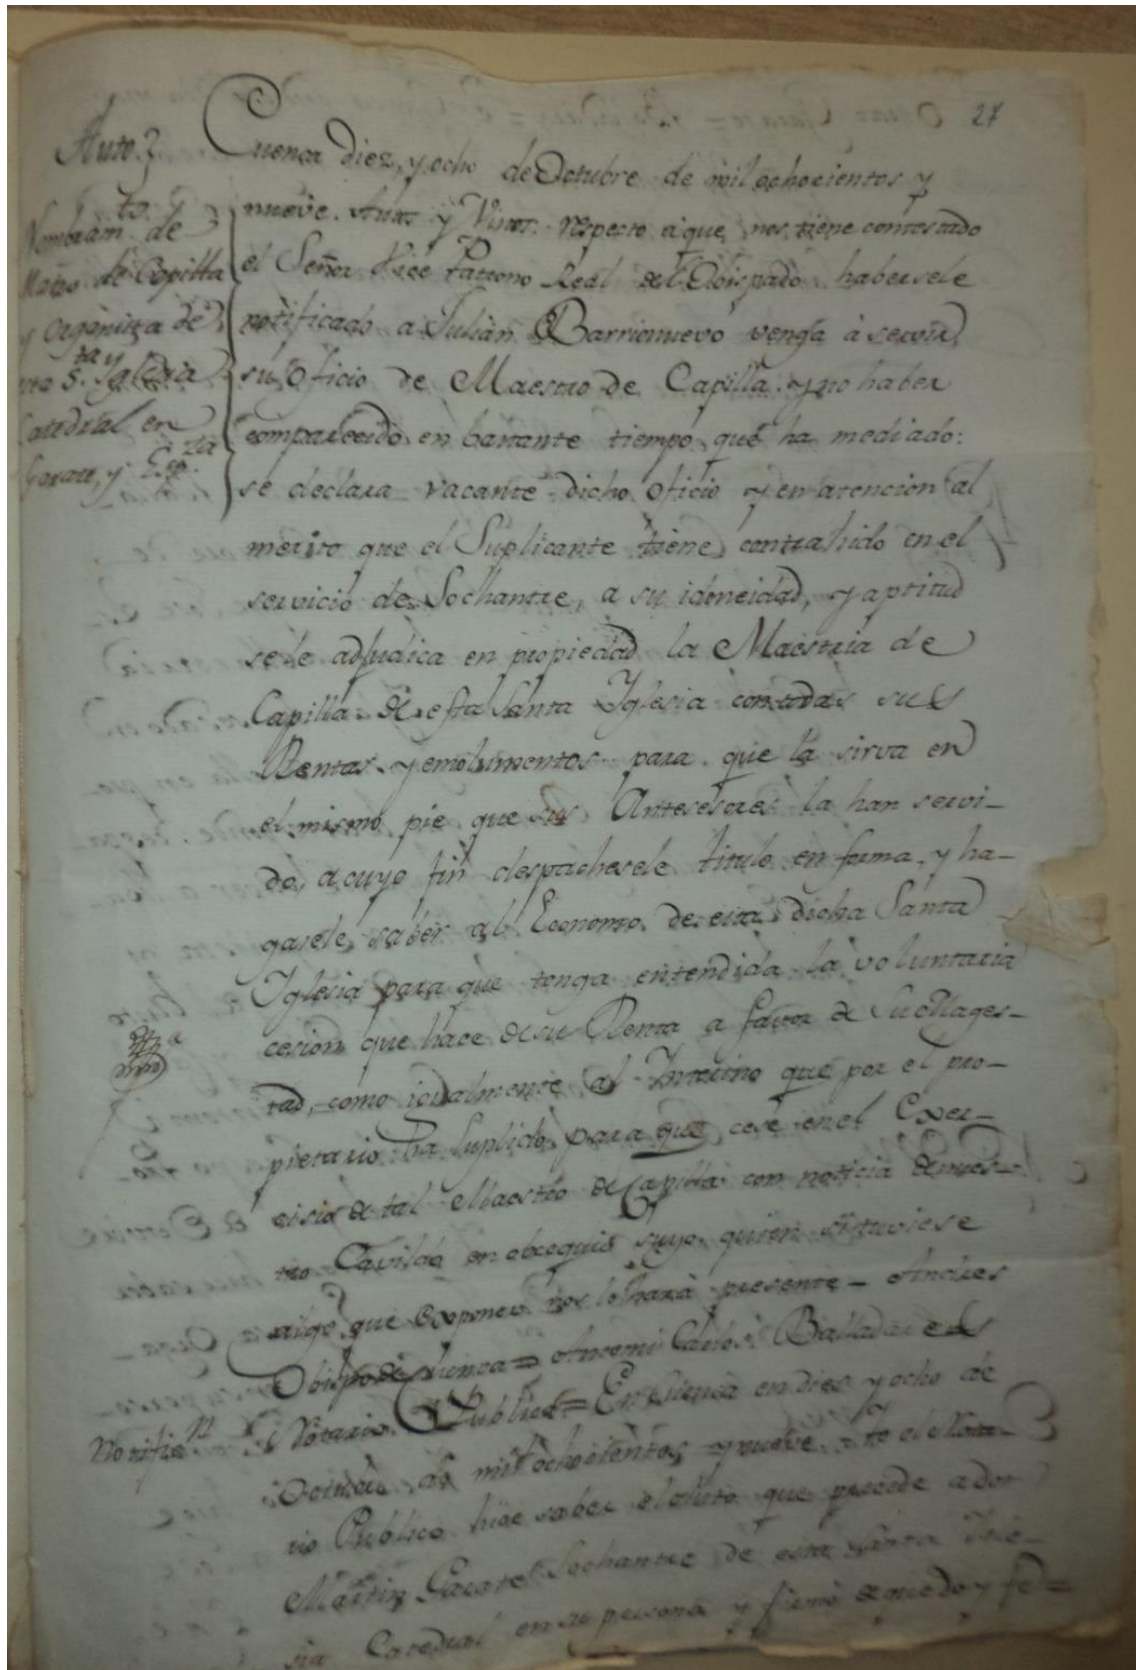 27
Auto
Nombram.to y
de
Maẽo de Capilla
y Organista de
esta S.ta Yglesia
Catedral en
Garate, y Esp.za
Cuenca diez, y ocho de Octubre de mil ochocientos y
nueve. Autos y Vistos: respecto a que nos tiene contestado
el Señor Vice Patrono Real del Obispado habersele
notificado a Julian Barrionuevo venga à servir
su Oficio de Maestro de Capilla y no haber
comparecido en bastante tiempo que ha mediado:
se declara vacante dicho Oficio y en atencion al
merito que el Suplicante tiene contrahido en el
servicio de Sochantre, a su idoneidad, y aptitud
se le adjudica en propiedad la Maestria de
Capilla de esta Santa Yglesia con todas sus
Rentas y emolumentos para que la sirva en
el mismo pie que sus Antesesores la han servi-
do, a cuyo fin despachesele titulo en forma, y ha-
gasele saber al Economo de esta dicha Santa
Yglesia para que tenga entendida la voluntaria
cesion que hace de su Renta a favor de Su Mages-
tad, como igualmente al Interino que por el pro-
pietario ha suplido para que cese en el Exer-
cisio de tal Maestro de Capilla con noticia de nues-
tro Cavildo en obsequio suyo, quien si tuviese
algo que exponer nos lo hará presente – Andres
Obispo de Cuenca = Ante mi Carlos Balladares
Notario Publico = En Cuenca en dies y ocho de
Notific.n
Octubre de mil ochocientos y nueve. Yo el Nota-
rio Publico hise saber el Auto que precede a don
Martin Garate Sochantre de esta Santa Ygle-
sia Catedral en su persona y firmó de que doy fe =